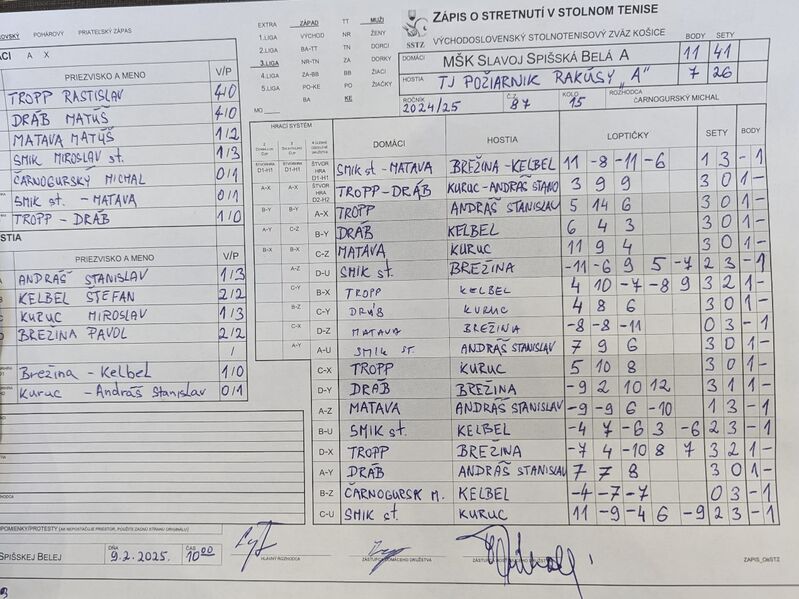 EXTRA ZÁPAD TT MUŽI
1.LIGA VÝCHOD NR ŽENY
2.LIGA BA-TT TN DORCI
3.LIGA NR-TN ZA DORKY
4.LIGA ZA-BB BB ŽIACI
5.LIGA PO-KE PO ŽIAČKY
BA KE
MO
POHÁROVÝ PRIATEĽSKÝ ZÁPAS
ZÁPIS O STRETNUTÍ V STOLNOM TENISE
SSTZ VÝCHODOSLOVENSKÝ STOLNOTENISOVÝ ZVÄZ KOŠICE
BODY SETY
DOMÁCI MŠK SLAVOJ SPIŠSKÁ BELÁ A 11 41
HOSTIA TJ POŽIARNIK RAKÚSY "A" 7 26
ROČNÍK 2024/25 Č.Z. 87 KOLO 15 ROZHODCA ČARNOGURSKÝ MICHAL
A X
PRIEZVISKO A MENO V/P
TROPP RASTISLAV 4/0
DRÁB MATÚŠ 4/0
MATAVA MATÚŠ 1/2
SMIK MIROSLAV st. 1/3
ČARNOGURSKÝ MICHAL 0/1
SMIK st. - MATAVA 0/1
TROPP - DRÁB 1/0
PRIEZVISKO A MENO V/P
ANDRÁŠ STANISLAV 1/3
KELBEL ŠTEFAN 2/2
KURUC MIROSLAV 1/3
BREŽINA PAVOL 2/2
/
Brežina - Kelbel 1/0
Kuruc - Andráš Stanislav 0/1
HRACÍ SYSTÉM DOMÁCI HOSTIA LOPTIČKY SETY BODY
ŠTVORHRA D1-H1 SMIK st - MATAVA BREŽINA - KELBEL 11 -8 -11 -6 1 3 -1
ŠTVORHRA D2-H2 TROPP - DRÁB KURUC - ANDRÁŠ STANO 3 9 9 3 0 1-
B-Y B-Y A-X TROPP ANDRÁŠ STANISLAV 5 14 6 3 0 1-
A-Y C-Z B-Y DRÁB KELBEL 6 4 3 3 0 1-
B-X B-X C-Z MATAVA KURUC 11 9 4 3 0 1-
A-Z D-U SMIK st. BREŽINA -11 -6 9 5 -7 2 3 -1
C-Y B-X TROPP KELBEL 4 10 -7 -8 9 3 2 1-
B-Z C-Y DRÁB KURUC 4 8 6 3 0 1-
C-X D-Z MATAVA BREŽINA -8 -8 -11 0 3 -1
A-Y A-U SMIK ST. ANDRÁŠ STANISLAV 7 9 6 3 0 1-
C-X TROPP KURUC 5 10 8 3 0 1-
D-Y DRÁB BREŽINA -9 2 10 12 3 1 1-
A-Z MATAVA ANDRÁŠ STANISLAV -9 -9 6 -10 1 3 -1
B-U SMIK st. KELBEL -4 7 -6 3 -6 2 3 -1
D-X TROPP BREŽINA -7 4 -10 8 7 3 2 1-
A-Y DRÁB ANDRÁŠ STANISLAV 7 7 8 3 0 1-
B-Z ČARNOGURSK M. KELBEL -4 -7 -7 0 3 -1
C-U SMIK st. KURUC 11 -9 -4 6 -9 2 3 -1
(AK NEPOSTAČUJE PRIESTOR, POUŽITE ZADNÚ STRANU ORIGINÁLU)
SPIŠSKEJ BELEJ DŇA 9.2.2025. ČAS 10 00
HLAVNÝ ROZHODCA
ZÁPIS_OsSTZ